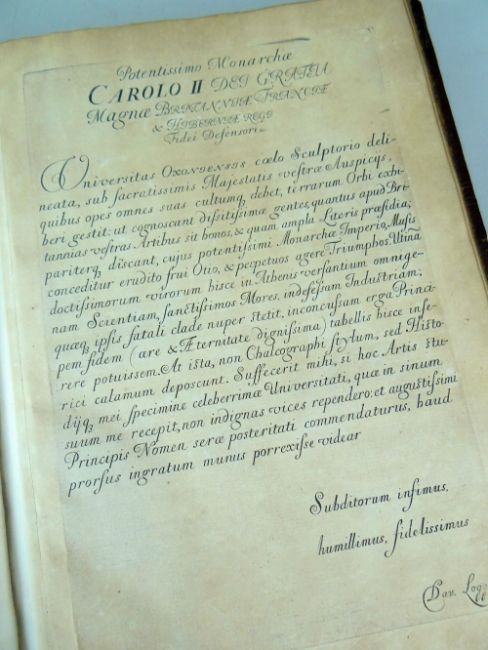 Potentissimo Monarchæ
CAROLO II DEI GRATIA
Magnæ BRITANNIÆ FRANCIÆ
& HIBERNIÆ REGI
Fidei Defensori
Universitas OXONIENSIS cœlo Sculptorio deli-
neata, sub sacratissimis Majestatis vestræ Auspicys,
quibus opes omnes suas cultumq, debet, terrarum Orbi exhi-
beri gestit: ut cognoscant dissitissimæ gentes, quantus apud Bri-
tannias vestras Artibus sit honos, & quam ampla Literis præsidia;
pariterq, discant, cujus potentissimi Monarchæ Imperio, Musis
conceditur erudito frui Otio, & perpetuos agere Triumphos. Utinã
doctissimorum virorum hisce in Athenis versantium omnige-
nam Scientiam, sanctissimos Mores, indefessam Industriam;
quæq, ipsis fatali clade nuper stetit, inconcussam erga Princi-
pem fidem (ære & Æternitate dignissima) tabellis hisce inse-
rere potuissem. At ista, non Chalcographi stylum, sed Histo-
rici calamum deposcunt. Suffecerit mihi, si hoc Artis stu-
dijq, mei specimine celeberrimæ Universitati, quæ in sinum
suum me recepit, non indignas vices rependero: et augustissimi
Principis Nomen seræ posteritati commendaturus, haud
prorsus ingratum munus porrexisse videar
Subditorum infimus,
humillimus, fidelissimus
Dav.